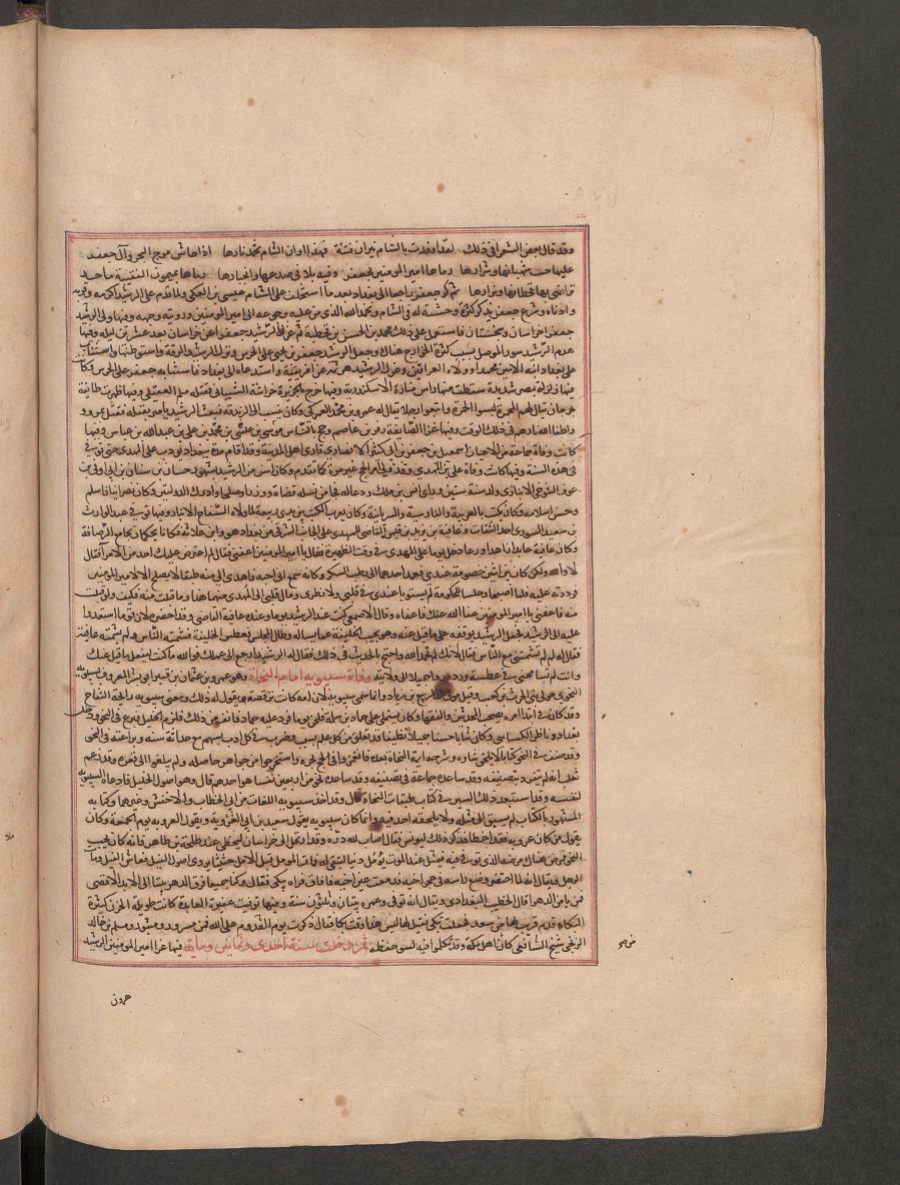 وقد قال بعض الشعرا في ذلك لقد اوقدت بالشام نيران فتنة فهذا اوان الشام تخمد نارها اذا هاش موج البحر وآل جعفر
عليها خبت شهبانها وشرارها رماها امير المومنين بجعفر وفيه تلافى صدعها وانجبارها رماها بميمون النقيبة ماجد
تراضى بها قحطانها ونزارها ثم كر جعفر راجعا الى بغداد بعد ما استخلف على الشام عيسى بن العكي ولما قدم على الرشيد اكرمه وقربه
وادناه وشرع جعفر يذكر كثرة وحشته له في الشام ويحمد الله الذي من عليه برجوعه الى امير المومنين ورويته وجهه وفيها ولى الرشيد
جعفرا خراسان وسجستان فاستعمل على ذلك محمد بن الحسن بن قحطبة ثم عزل الرشيد جعفرا عن خراسان بعد عشرين ليله وفيها
هدم الرشيد سور الموصل بسبب كثرة الخوارج هناك وجعل الرشيد جعفر بن يحيى على الحرس ونزل الرشيد الرقة واستوطنها واستناب
على بغداد ابنه الامين محمدا وولاه العراقين وعزل الرشيد هرثمة عن افريقية واستدعاه الى بغداد فاستنابه جعفر على الحرس وكان
فيها زلزلة بمصر شديدة سقطت منها راس منارة الاسكندرية وفيها خرج بالجزيرة خراشة الشيباني فقتله مسلم العقيلي وفيها ظهرت طايفة
بجرجان يقال لهم المحمرة لبسوا الحمرة واتبعوا رجلا يقال له عمرو بن محمد العمركي وكان ينسب الى الزندقة فبعث الرشيد يامر بقتله فقتل بمرو
واطفا الله نارهم في ذلك الوقت وفيها غزا الصايفة زفر بن عاصم وحج بالناس موسى بن عيسى بن محمد بن علي بن عبد الله بن عباس وفيها
كانت وفاة جماعة من الاعيان اسمعيل بن جعفر بن ابي كثير الانصاري قاري اهل المدينة وقد اقام مدة ببغداد يودب علي بن المهدي حتى توفي
في هذه السنة وفيها كانت وفاة علي بن المهدي وقد ولي امر الحج غير مرة كما تقدم وكان اسن من الرشيد بشهور حسان بن سنان بن ابي اوفى بن
عوف التنوخي الانباري ولد سنة ستين وراى انس بن ملك ودعا له فجا من نسله قضاة ووزرا وصلحا وادرك الدولتين وكان نصرانيا فاسلم
وحسن اسلامه وكان يكتب بالعربية والفارسية والسريانة وكان يعرب الكتب بين يدي ربيعة لما ولاه السفاح الانبار وفيها توفي عبد الوارث
بن سعيد التنوري احد الثقات وعافية بن يزيد بن قيس القاضي للمهدي على الجانب الشرقي من بغداد هو وابن علاثة فكانا يحكمان بجامع الرصافة
وكان عافية عابدا زاهدا ورعا دخل يوما على المهدي في وقت الظهيرة فقال يا امير المومنين اعفني فقال لم اعترض عليك احد من الامرا قال
لا والله ولكن كان بين اثنين خصومة عندي فعمد احدهما الى رطب السكر وكانه سمع اني احبه فاهدى الي منه طبقا لا يصلح الا لامير المومنين
فرددته عليه فلما اصبحا وجلسا للحكومة لم يستويا عندي في قلبي ولا نظري ومال قلبي الى المهدي منهما هذا وما قبلت منه فكيف ولو قبلت
منه فاعفني يا امير المومنين عفا الله عنك فاعفاه وقال الاصمعي كنت عند الرشيد يوما وعنده عافية القاضي وقد احضره لان قوما استعدوا
عليه الى الرشيد فجعل الرشيد يوقفه على ما قيل عنه وهو يجيب الخليفة عما يساله وطال المجلس فعطس الخليفة فشمته الناس ولم يشمته عافية
فقال له لم لم تشمتني مع الناس فقال لانك لم تحمد الله واحتج بالحديث في ذلك فقال له الرشيد ارجع الى عملك فوالله ما كنت لتفعل ما قيل عنك
وانت لم تسامحني في عطسة ورده ردا جميلا الى ولايته وفاة سيبويه امام النحاة وهو عمرو بن عثمان بن قنبر ابو بشر المعروف بسيبويه
النحوي مولى بني الحرث بن كعب وقيل مولى الربيع بن زياد وانما سمي سيبويه لان امه كانت ترقصه وتقول له ذلك ومعنى سيبويه رايحة التفاح
وقد كان في ابتدا امره يصحب المحدثين والفقها وكان يستملي على حماد بن سلمة فلحن يوما فرد عليه حماد فانف من ذلك فلزم الخليل فبرع في النحو ودخل
بغداد وناظر الكسائي وكان شابا حسنا جميلا نظيفا قد تعلق من كل علم بسبب وضرب في كل ادب بسهم مع حداثة سنه وبراعته في النحو
وقد صنف في النحو كتابا لا يلحق شاوه وشرحه ايمة النحاة بعده فانغمروا في لجج بحره واستخرجوا من جواهر حاصله ولم يبلغوا الى قعره وقد زعم
ثعلب انه لم ينفرد بتصنيفه وقد ساعده جماعة في تصنيفه وقد ساعده نحو من اربعين نفسا هو احدهم قال وهو اصول الخليل فادعاه سيبويه
لنفسه وقد استبعد ذلك السيرافي في كتاب طبقات النحاة قال وقد اخذ سيبويه اللغات من ابي الخطاب والاخفش وغيرهما وكتابه
المشهور بالكتاب لم يسبق الى مثله ولا يلحقه احد فيه وانما كان سيبويه يقول سعيد بن ابي العروبة ويقول العروبه يوم الجمعة وكان
يقول من كان عروبه فقد اخطا فذكر ذلك ليونس فقال اصاب لله دره وقد ارتحل الى خراسان ليحظى عند طلحة بن طاهر فانه كان يحب
النحو فمرض هناك مرضه الذي توفي فيه فتمثل عند الموت يؤمل دنيا لتبقى له فمات المومل قبل الامل حثيثا يروي اصول الفسيل فعاش الفسيل ومات
الرجل ويقال انه لما احتضر وضع راسه في حجر اخيه فدمعت عين اخيه فافاق فراه يبكي فقال وكنا جميعا فرق الدهر بيننا الى الابد الاقصى
فمن يامن الدهرا قال الخطيب البغدادي ويقال انه توفي وعمره ثنتان وثلثون سنة وفيها توفيت عفيرة العابدة كانت طويلة الحزن كثيرة
البكاء قدم قريب لها من سفر فجعلت تبكي فقيل لها ليس هذا وقت بكا فقالت ذكرت يوم القدوم على الله فمن مسرور ومثبور ومسلم بن خالد
الزنجي شيخ الشافعي كان من اهل مكة وقد تكلموا فيه لسو حفظه ثم دخلت سنة احدى وثمانين وماية فيها غزا امير المومنين الرشيد
هرون